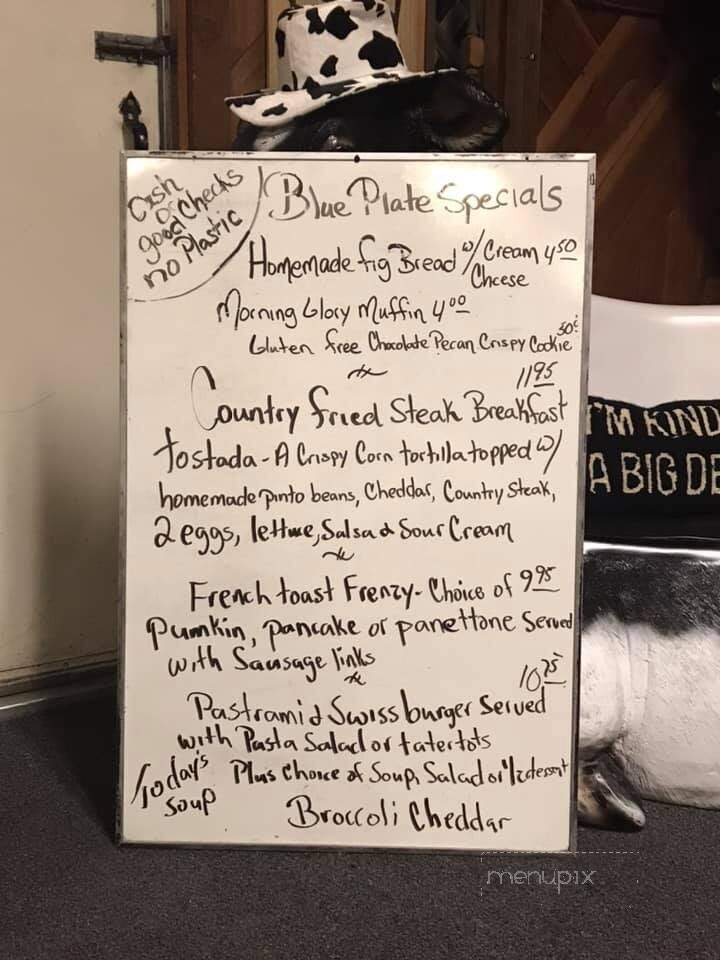 Cash
or
good Checks
no Plastic
Blue Plate Specials
Homemade fig Bread w/ Cream Cheese 4.50
Morning Glory Muffin 4.00
Gluten free Chocolate Pecan Crispy Cookie 50¢
11.95
Country fried Steak Breakfast
tostada - A Crispy Corn tortilla topped w/
homemade pinto beans, Cheddar, Country Steak,
2 eggs, lettuce, Salsa & Sour Cream
French toast Frenzy - Choice of 9.95
Pumkin, pancake or panettone Served
with Sausage links
10.75
Pastrami & Swiss burger Served
with Pasta Salad or tater tots
Plus Choice of Soup, Salad or 1/2 dessert
Today's
Soup
Broccoli Cheddar
I'M KIND
A BIG DE
menupix